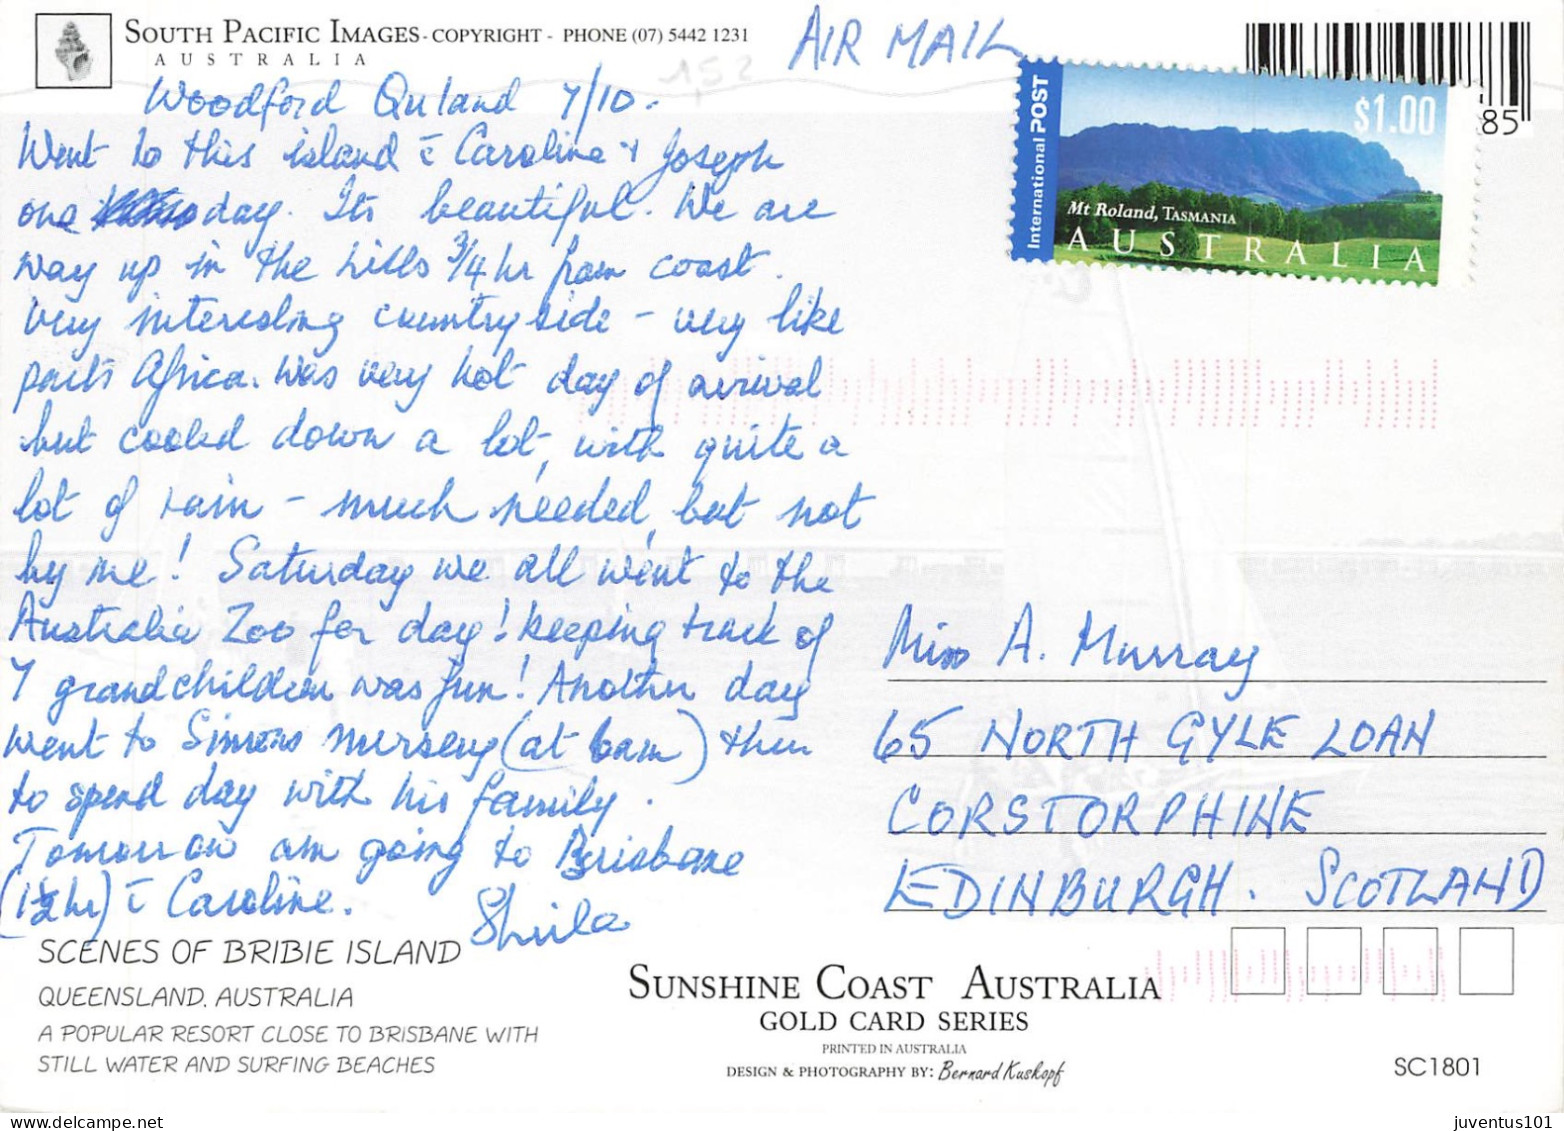 SOUTH PACIFIC IMAGES - COPYRIGHT - PHONE (07) 5442 1231
AUSTRALIA
AIR MAIL
85
International POST
$1.00
Mt Roland, TASMANIA
AUSTRALIA
152
Woodford Qnland 7/10.
Went to this island c̄ Caroline + Joseph
one day. Its beautiful. We are
way up in the hills 3/4 hr from coast.
Very interesting countryside - very like
parts Africa. Was very hot day of arrival
but cooled down a lot, with quite a
lot of rain - much needed, but not
by me! Saturday we all went to the
Australia Zoo for day! keeping track of
7 grandchildren was fun! Another day
went to Simons nursery (at 6am) then
to spend day with his family.
Tomorrow am going to Brisbane
(1½hr) c̄ Caroline. Sheila
Miss A. Murray
65 NORTH GYLE LOAN
CORSTORPHINE
EDINBURGH. SCOTLAND
SCENES OF BRIBIE ISLAND
QUEENSLAND, AUSTRALIA
A POPULAR RESORT CLOSE TO BRISBANE WITH
STILL WATER AND SURFING BEACHES
SUNSHINE COAST AUSTRALIA
GOLD CARD SERIES
PRINTED IN AUSTRALIA
DESIGN & PHOTOGRAPHY BY: Bernard Kuskopf
SC1801
juventus101